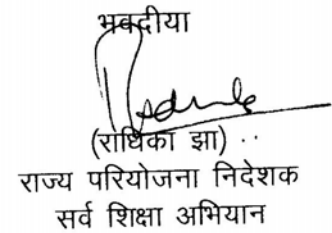 भवदीया
(राधिका झा)
राज्य परियोजना निदेशक
सर्व शिक्षा अभियान